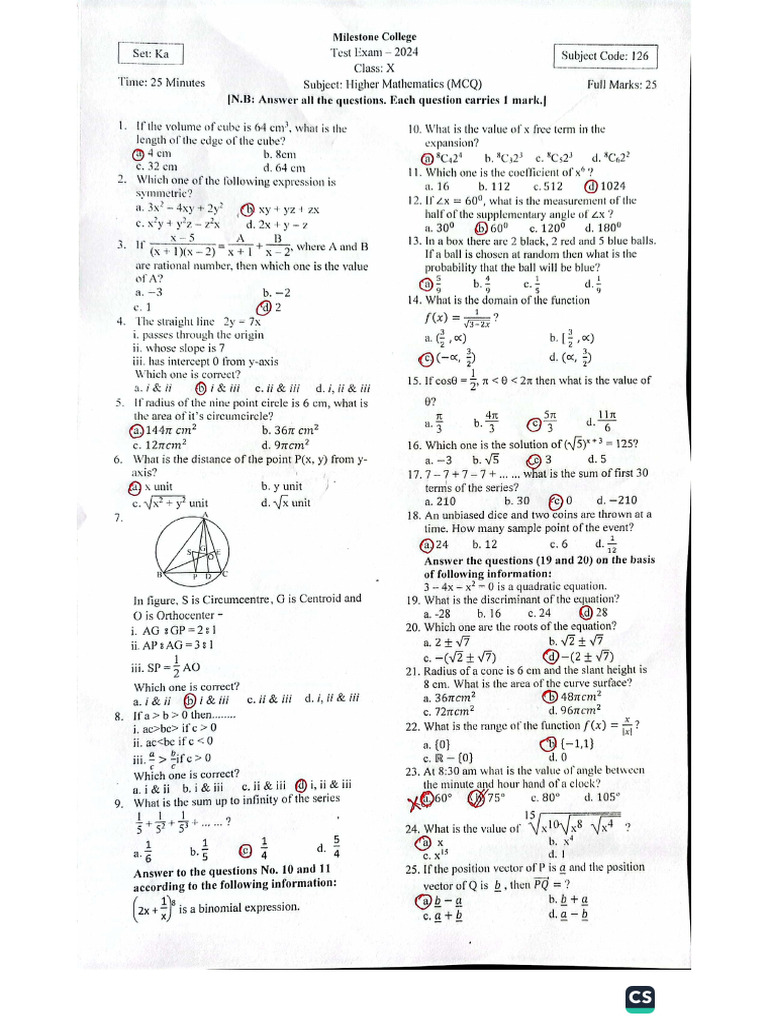 Milestone College
Set: Ka
Test Exam – 2024
Subject Code: 126
Class: X
Time: 25 Minutes
Subject: Higher Mathematics (MCQ)
Full Marks: 25
[N.B: Answer all the questions. Each question carries 1 mark.]
1. If the volume of cube is 64 cm³, what is the
length of the edge of the cube?
a. 4 cm b. 8cm
c. 32 cm d. 64 cm
2. Which one of the following expression is
symmetric?
a. 3x² – 4xy + 2y² b. xy + yz + zx
c. x²y + y²z – z²x d. 2x + y – z
3. If (x – 5)/((x + 1)(x – 2)) = A/(x + 1) + B/(x – 2), where A and B
are rational number, then which one is the value
of A?
a. –3 b. –2
c. 1 d. 2
4. The straight line 2y = 7x
i. passes through the origin
ii. whose slope is 7
iii. has intercept 0 from y-axis
Which one is correct?
a. i & ii b. i & iii c. ii & iii d. i, ii & iii
5. If radius of the nine point circle is 6 cm, what is
the area of it's circumcircle?
a. 144π cm² b. 36π cm²
c. 12πcm² d. 9πcm²
6. What is the distance of the point P(x, y) from y-
axis?
a. x unit b. y unit
c. √(x² + y²) unit d. √x unit
7.
A
S G E
O
B P D C
In figure, S is Circumcentre, G is Centroid and
O is Orthocenter –
i. AG : GP = 2 : 1
ii. AP : AG = 3 : 1
iii. SP = 1/2 AO
Which one is correct?
a. i & ii b. i & iii c. ii & iii d. i, ii & iii
8. If a > b > 0 then........
i. ac>bc> if c > 0
ii. ac<bc if c < 0
iii. a/c > b/c if c > 0
Which one is correct?
a. i & ii b. i & iii c. ii & iii d. i, ii & iii
9. What is the sum up to infinity of the series
1/5 + 1/5² + 1/5³ + ... ... ?
a. 1/6 b. 1/5 c. 1/4 d. 5/4
Answer to the questions No. 10 and 11
according to the following information:
(2x + 1/x)⁸ is a binomial expression.
10. What is the value of x free term in the
expansion?
a. ⁸C₄2⁴ b. ⁸C₃2³ c. ⁸C₅2³ d. ⁸C₆2²
11. Which one is the coefficient of x⁶ ?
a. 16 b. 112 c. 512 d. 1024
12. If ∠x = 60⁰, what is the measurement of the
half of the supplementary angle of ∠x ?
a. 30⁰ b. 60⁰ c. 120⁰ d. 180⁰
13. In a box there are 2 black, 2 red and 5 blue balls.
If a ball is chosen at random then what is the
probability that the ball will be blue?
a. 5/9 b. 4/9 c. 1/5 d. 1/9
14. What is the domain of the function
f(x) = 1/√(3–2x) ?
a. (3/2, ∝) b. [3/2, ∝)
c. (–∝, 3/2) d. (∝, 3/2)
15. If cosθ = 1/2, π < θ < 2π then what is the value of
θ?
a. π/3 b. 4π/3 c. 5π/3 d. 11π/6
16. Which one is the solution of (√5)ˣ⁺³ = 125?
a. –3 b. √5 c. 3 d. 5
17. 7 – 7 + 7 – 7 + ... ... what is the sum of first 30
terms of the series?
a. 210 b. 30 c. 0 d. –210
18. An unbiased dice and two coins are thrown at a
time. How many sample point of the event?
a. 24 b. 12 c. 6 d. 1/12
Answer the questions (19 and 20) on the basis
of following information:
3 – 4x – x² = 0 is a quadratic equation.
19. What is the discriminant of the equation?
a. -28 b. 16 c. 24 d. 28
20. Which one are the roots of the equation?
a. 2 ± √7 b. √2 ± √7
c. –(√2 ± √7) d. –(2 ± √7)
21. Radius of a cone is 6 cm and the slant height is
8 cm. What is the area of the curve surface?
a. 36πcm² b. 48πcm²
c. 72πcm² d. 96πcm²
22. What is the range of the function f(x) = x/|x| ?
a. {0} b. {–1,1}
c. ℝ – {0} d. 0
23. At 8:30 am what is the value of angle between
the minute and hour hand of a clock?
a. 60° b. 75° c. 80° d. 105°
24. What is the value of ¹⁵√(x¹⁰√(x⁸ √(x⁴))) ?
a. x b. x⁴
c. x¹⁵ d. 1
25. If the position vector of P is a and the position
vector of Q is b , then PQ = ?
a. b – a b. b + a
c. a + b d. a – b
CS